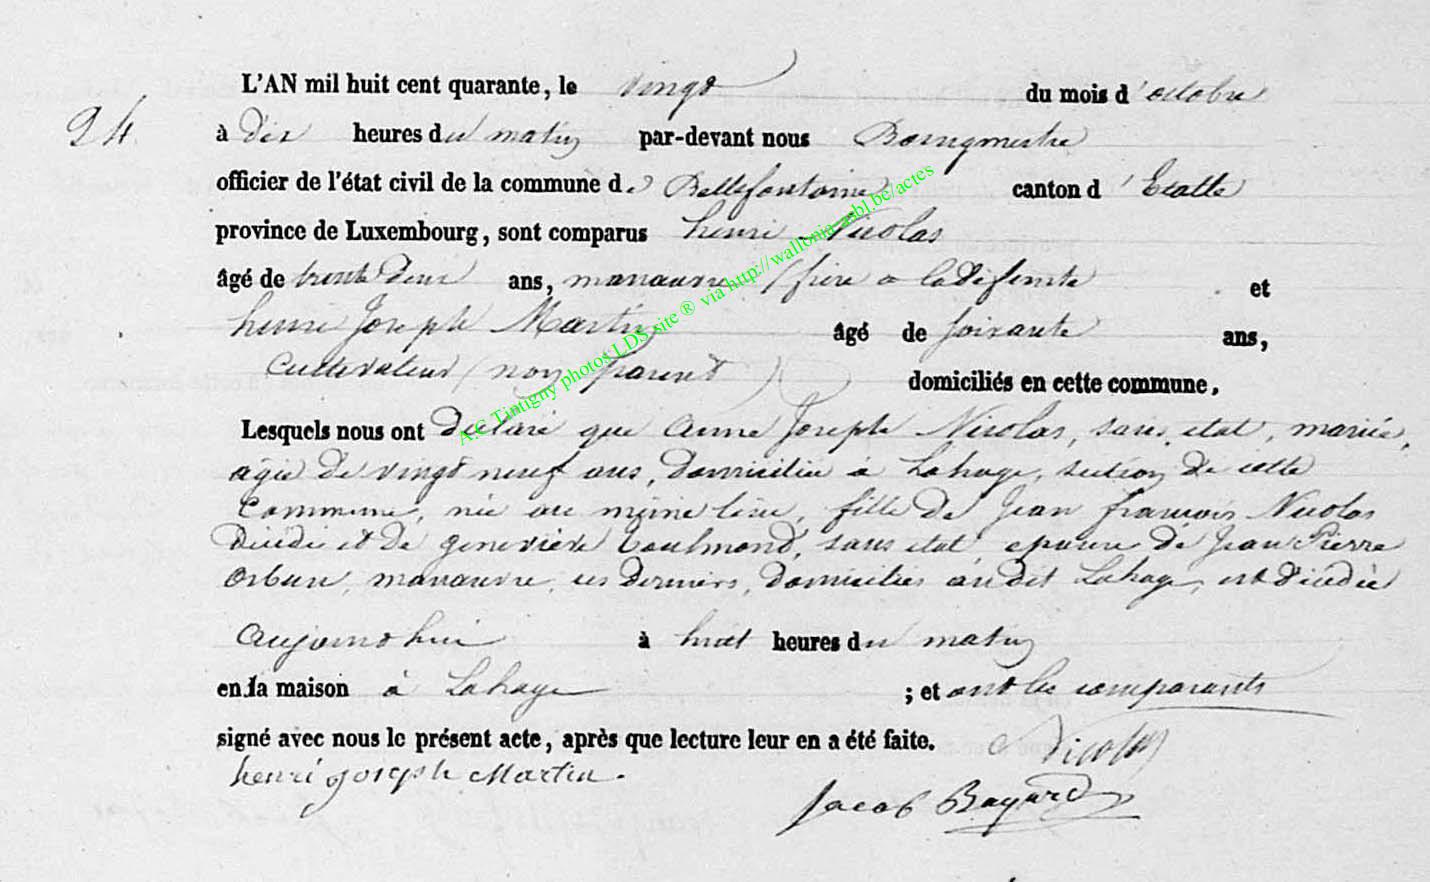 L'AN mil huit cent quarante, le vingt du mois d'octobre
24
à dix heures du matin par-devant nous Bourgmestre
officier de l'état civil de la commune de Bellefontaine canton d'Etalle
province de Luxembourg, sont comparus henri Nicolas
âgé de trente deux ans, manœuvre (frère a la défunte et
henri Joseph Martin âgé de soixante ans,
Cultivateur (non parent) domiciliés en cette commune.
Lesquels nous ont déclaré que Anne Joseph Nicolas, sans état, mariée,
agée de vingt neuf ans, domiciliée à Lahage, section de cette
Commune, née au même lieu, fille de Jean françois Nicolas
Décédé et de geneviève Goulmond, sans état epouse de Jean Pierre
Orban, manœuvre, ces derniers, domiciliés au dit Lahage, est décédée
Aujourd'hui à huit heures du matin
en la maison à Lahage ; et ont les comparants
signé avec nous le présent acte, après que lecture leur en a été faite.
Nicolas
henri joseph Martin.
Jacob Bayard
A.C Tintigny photos LDS site ® via http://wallonia-asbl.be/actes